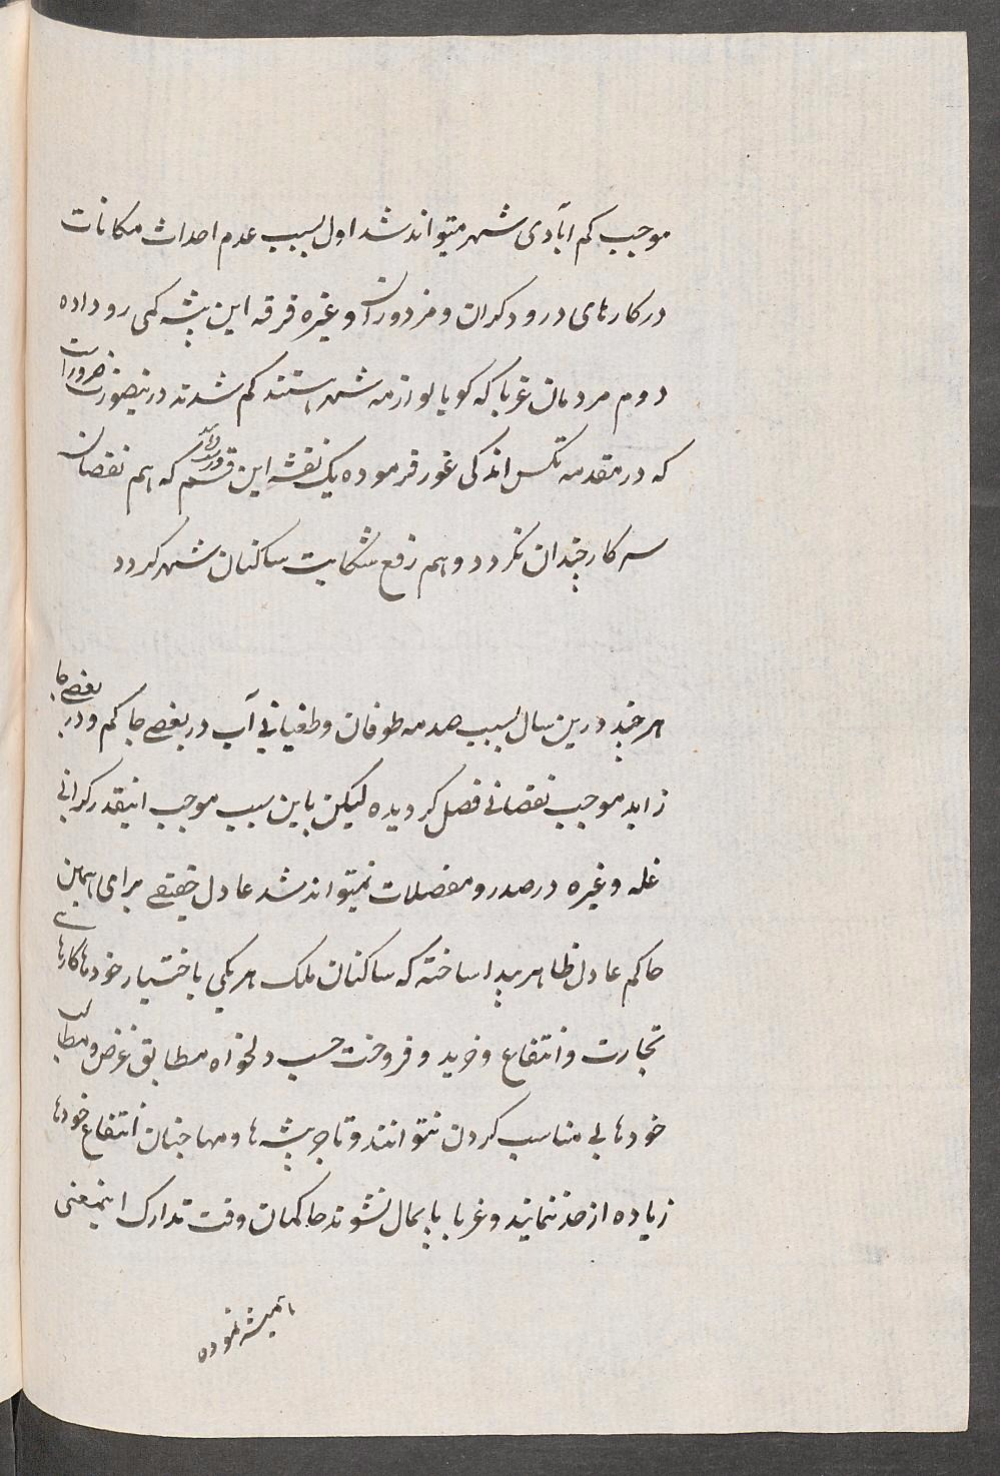 موجب کم ابادی شهر میتواند شد اول بسبب عدم احداث مکانات
در کارهای درودکران و مزدوران و غیره فرقه این پیشه کمی رو داده
دوم مردمان غربا که کویا لوازمه شهر هستند کم شدند درینصورت ضرور است
که در مقدمه تکس اندکی غور فرموده یک نقشه این قسم که هم نقصان
سرکار چندان نکردد و هم رفع شکایت ساکنان شهر کردد
هرچند درین سال بسبب صدمه طوفان و طغیانی آب در بعضی جا کم و در بعضی جا
زاید موجب نقصانی فصل کردیده لیکن باین سبب موجب اینقدر کرانی
غله و غیره در صدر و مفصلات نمیتواند شد عادل حقیقی برای همین
حاکم عادل ظاهر پیدا ساخته که ساکنان ملک هر یکی باختیار خودها کارهای
تجارت و انتفاع و خرید و فروخت حسب دلخواه مطابق غرض و مطالب
خودها بی مناسب کردن نتوانند و تاجر پیشه ها و مهاجنان انتفاع خودها
زیاده از حد ننمایند و غربا پایمال نشوند حاکمان وقت تدارک اینمعنی
همیشه نموده